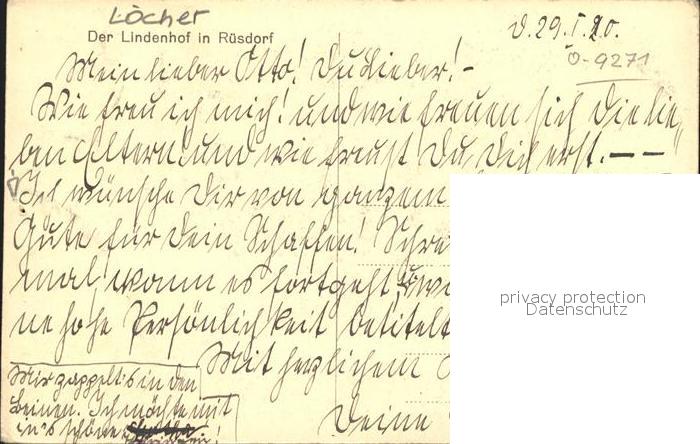 Löcher
Der Lindenhof in Rüsdorf
d. 29. I. 20.
O-9271
Mein lieber Otto! Du Lieber! -
Wie freu ich mich! und wie freuen sich die lie-
ben Eltern! und wie freust Du Dich erst. - -
Ich wünsche Dir von ganzem
Gute für Dein Schaffen! Schrei
mal wann es fortgeht, u. wi
ne hohe Persönlichkeit betitelt
Mit herzlichem
Deine
Mir zappelt's in den
Beinen. Ich möchte mit
in's schöne
privacy protection
Datenschutz